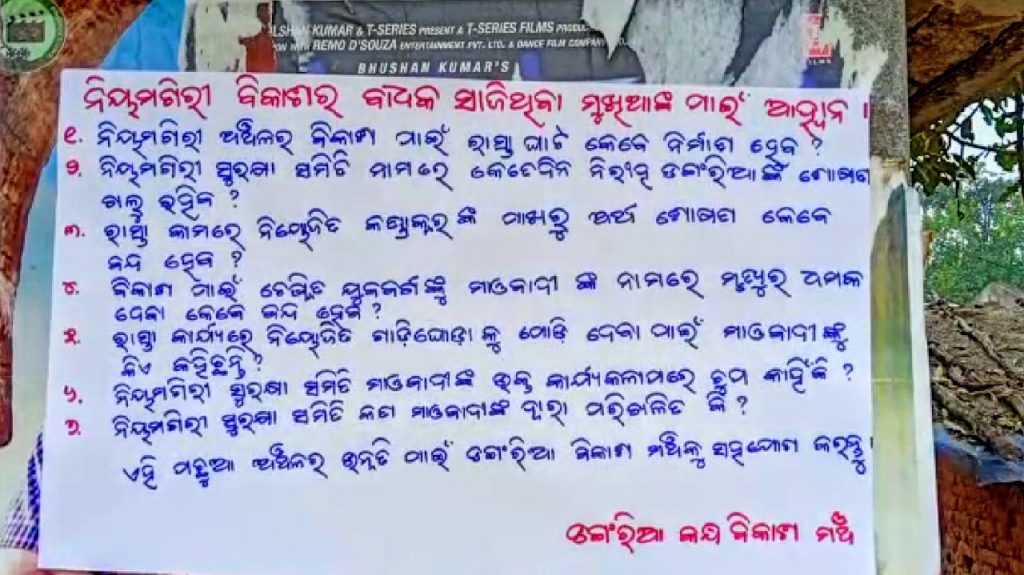 LSHAN KUMAR & T-SERIES PRESENT A T-SERIES FILMS PRODUC
REMO D'SOUZA ENTERTAINMENT PVT. LTD. & DANCE FILM COMPANY
BHUSHAN KUMAR'S
ନିୟମଗିରୀ ବିକାଶର ବାଧକ ସାଜିଥିବା ମୁଖିଆଙ୍କ ପାଇଁ ଆହ୍ୱାନ ।
୧. ନିୟମଗିରୀ ଅଞ୍ଚଳର ବିକାଶ ପାଇଁ ରାସ୍ତା ଘାଟ କେବେ ନିର୍ମାଣ ହେବ ?
୨. ନିୟମଗିରୀ ସୁରକ୍ଷା ସମିତି ନାମରେ କେତେଦିନ ନିରୀହ ଡଙ୍ଗରିଆଙ୍କ ଶୋଷଣ
ଚାଲୁ ରହିବ ?
୩. ରାସ୍ତା କାମରେ ନିୟୋଜିତ କଣ୍ଟ୍ରାକ୍ଟରଙ୍କ ପାଖରୁ ଅର୍ଥ ଶୋଷଣ କେବେ
ବନ୍ଦ ହେବ ?
୪. ବିକାଶ ପାଇଁ ଚେଷ୍ଟିତ ଯୁବବର୍ଗଙ୍କୁ ମାଓବାଦୀ ଙ୍କ ନାମରେ ମୃତ୍ୟୁର ଧମକ
ଦେବା କେବେ ବନ୍ଦ ହେବ ?
୫. ରାସ୍ତା କାର୍ଯ୍ୟରେ ନିୟୋଜିତ ଗାଡ଼ିଘୋଡ଼ା କୁ ପୋଡ଼ି ଦେବା ପାଇଁ ମାଓବାଦୀଙ୍କୁ
କିଏ କହିଛନ୍ତି ?
୬. ନିୟମଗିରୀ ସୁରକ୍ଷା ସମିତି ମାଓବାଦୀଙ୍କ ଉକ୍ତ କାର୍ଯ୍ୟକଳାପରେ ଚୁପ କାହିଁକି ?
୭. ନିୟମଗିରୀ ସୁରକ୍ଷା ସମିତି କଣ ମାଓବାଦୀଙ୍କ ଦ୍ୱାରା ପରିଚାଳିତ କି ?
ଏହି ପଛୁଆ ଅଞ୍ଚଳର ଉନ୍ନତି ପାଇଁ ଡଙ୍ଗରିଆ ବିକାଶ ମଞ୍ଚକୁ ସହଯୋଗ କରନ୍ତୁ ।
ଡଙ୍ଗରିଆ କନ୍ଧ ବିକାଶ ମଞ୍ଚ